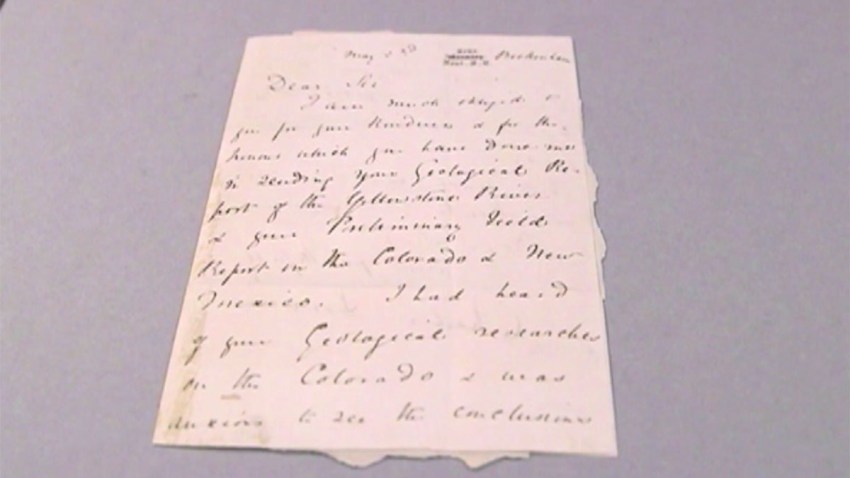 May 2nd Beckenham
Dear Sir
I am much obliged to
you for your kindness & for the
honour which you have done me
in sending your Geological Re-
port of the Yellowstone River
& your Preliminary Field
Report on the Colorado & New
Mexico. I had heard
of your Geological researches
on the Colorado & was
anxious to see the conclusions